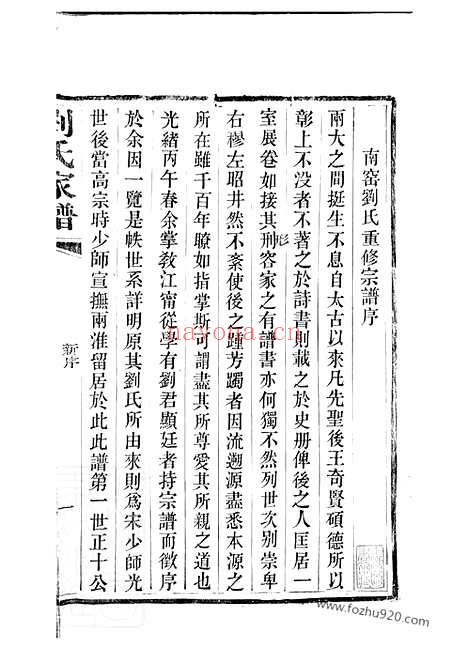 南窑劉氏重修宗譜序
兩大之間挺生不息自太古以來凡先聖後王奇賢碩德所以
彰上不没者不著之於詩書則載之於史册俾後之人匡居一
室展卷如接其刑容家之有譜書亦何獨不然列世次别崇卑
形
右穆左昭井然不紊使後之踵芳躅者因流遡源盡悉本源之
所在雖千百年瞭如指掌斯可謂盡其所尊愛其所親之道也
光緒丙午春余掌敎江甯從學有劉君顯廷者持宗譜而徵序
於余因一覽是帙世系詳明原其劉氏所由來則爲宋少師光
世後當高宗時少師宣撫兩淮留居於此此譜第一世正十公
劉氏家譜
新序
一
nayona.cn
www.fozhu920.com